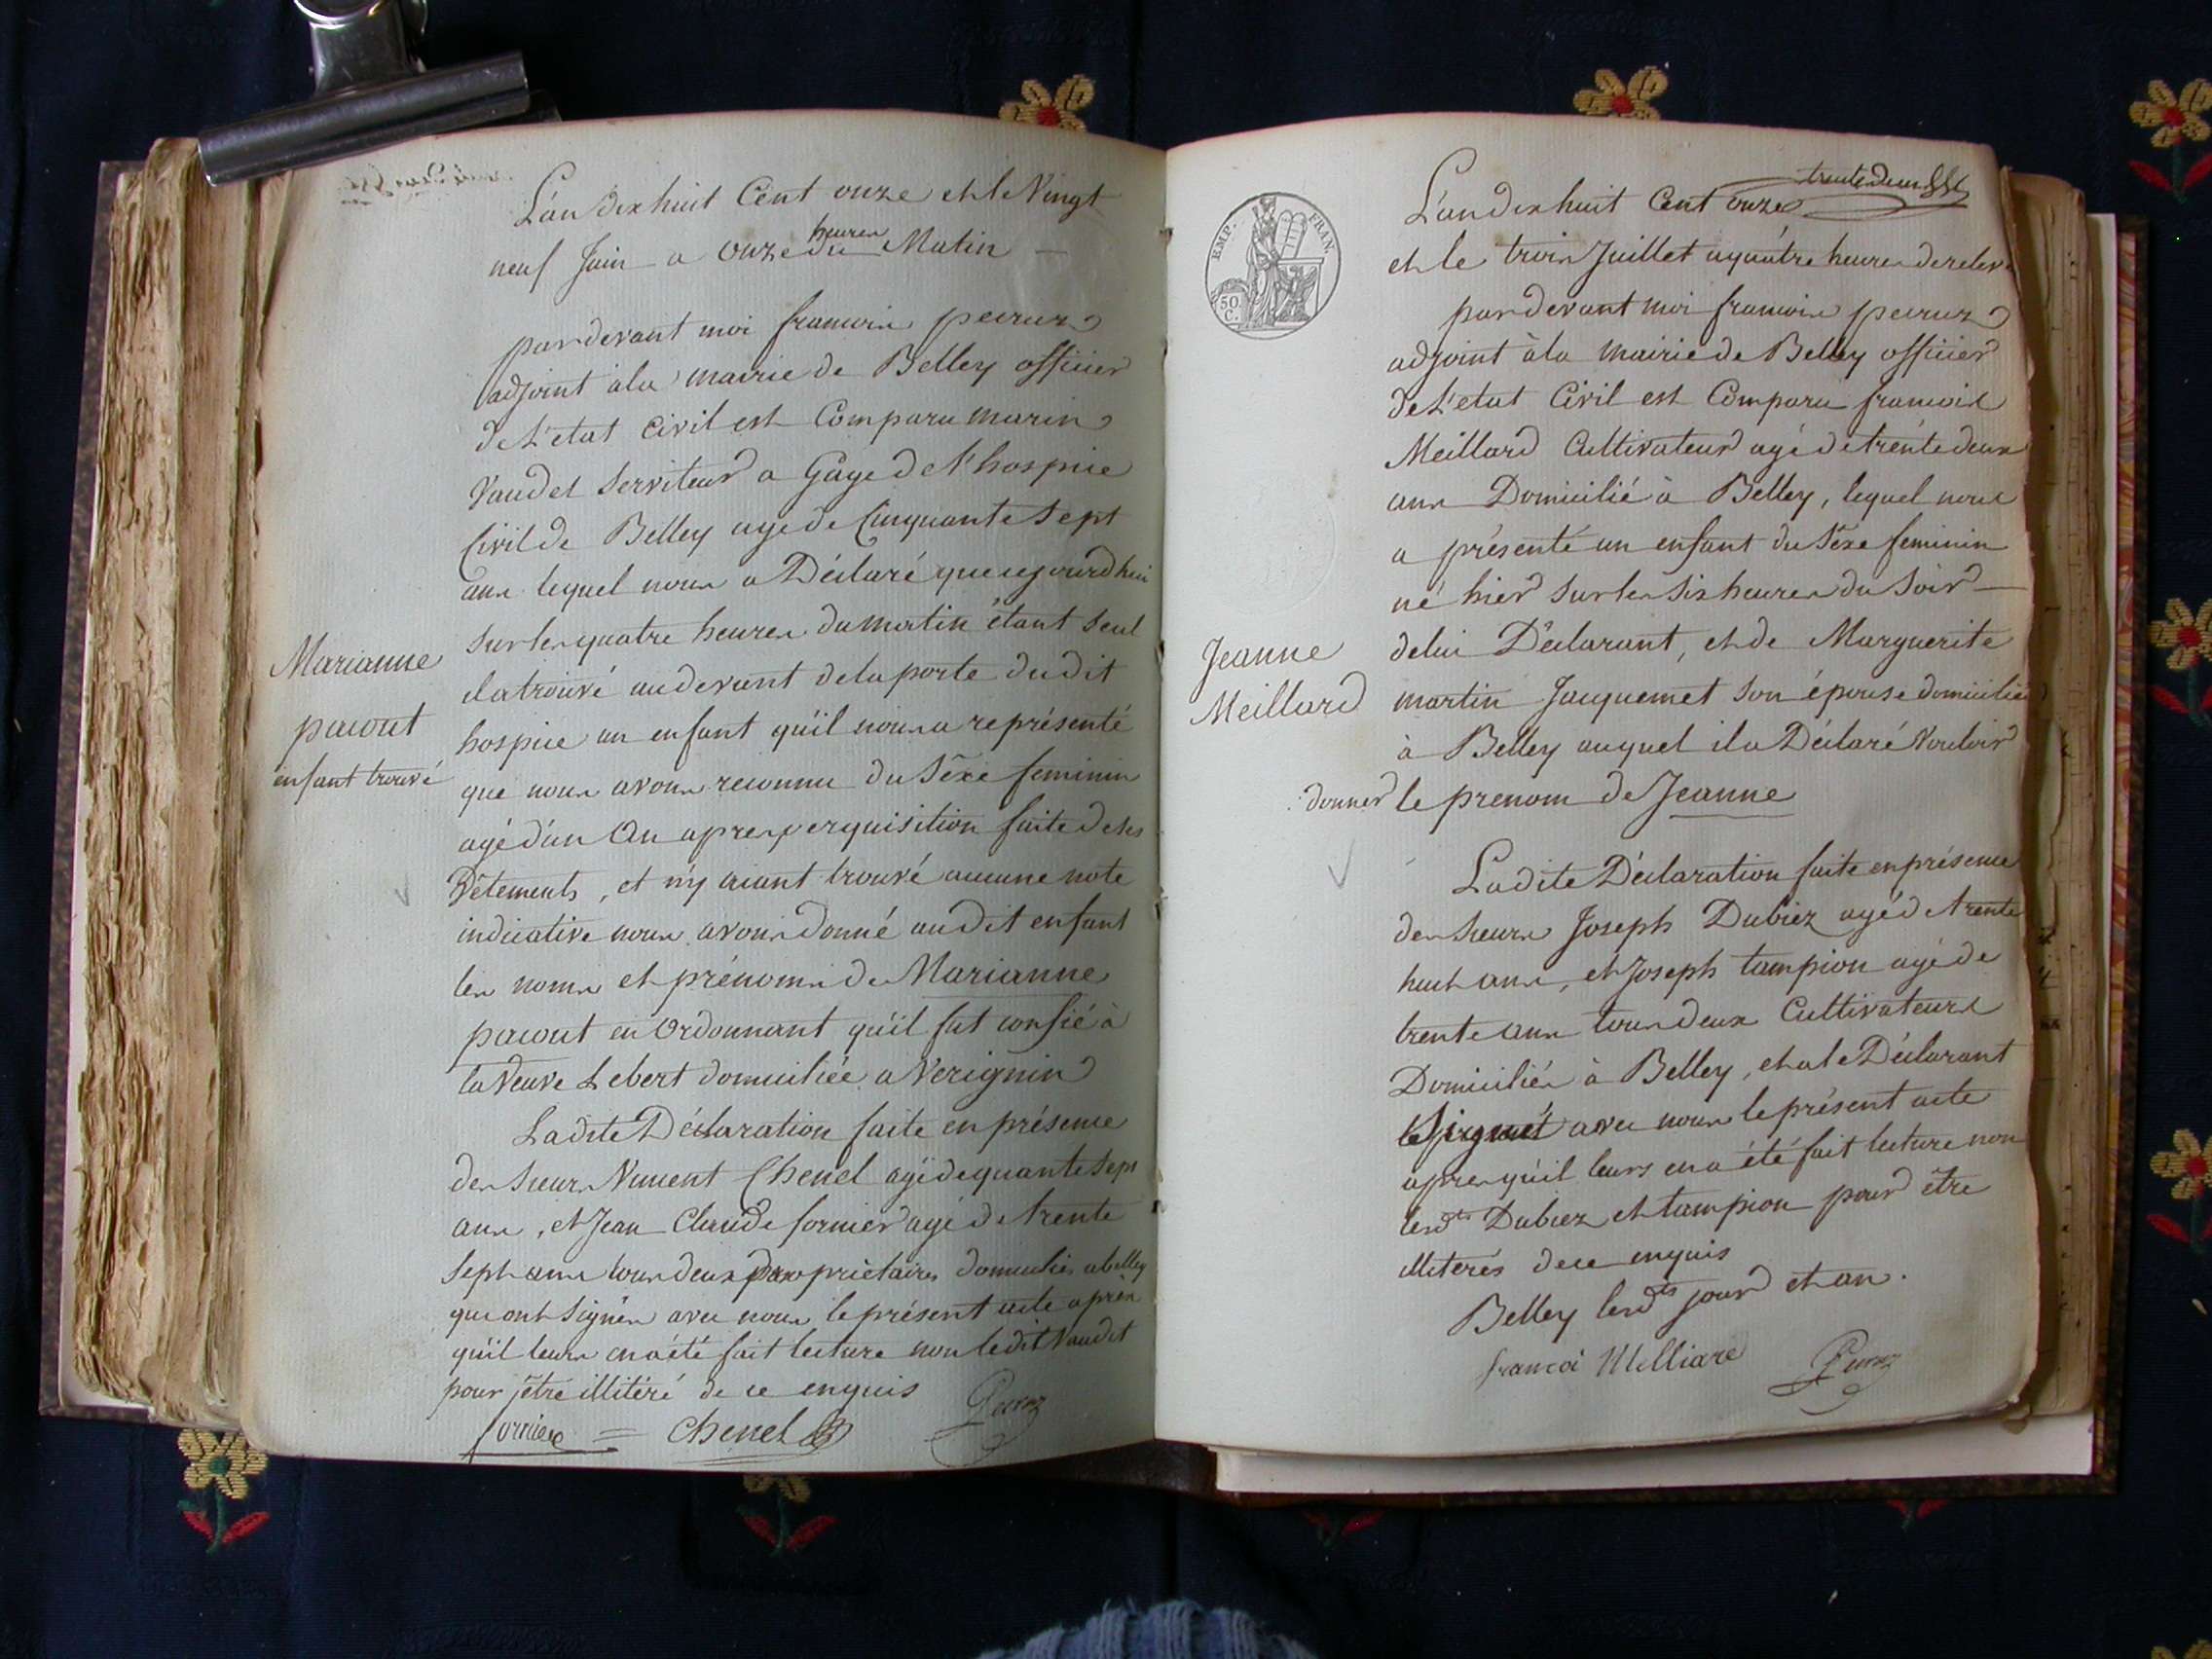 L'an dix huit Cent onze et le Vingt
neuf Juin a onze heures du Matin —
pardevant moi francois peiruz
adjoint à la mairie de Belley officier
de L'etat civil est Comparu marin
Vaudet serviteur a Gage de l'hospice
Civil de Belley agé de Cinquante Sept
ans lequel nous a Déclaré que cejourd'hui
sur les quatre heures du matin étant seul
il a trouvé au devant de la porte dudit
Marianne
pacout
enfant trouvé
hospice un enfant qu'il nous a représenté
que nous avons reconnu du Sèxe feminin
agé d'un An apres perquisition faite de ses
Vêtements, et n'y aiant trouvé aucune note
indicative nous avons donné audit enfant
les noms et prénoms de Marianne
pacout en Ordonnant qu'il fut confié à
la Veuve Lebert domiciliée a Verignin
Ladite Déclaration faite en présence
des sieurs Vincent Chenel agé de quante Sept
ans, et Jean Claude fornier agé de trente
Sept ans tous deux propriétaires domiciliés a belley
qui ont Signés avec nous le présent acte après
qu'il leurs en a été fait lecture non ledit Vaudet
pour être illitéré de ce enquis
fornier = Chenel
trente deux
EMP. FRAN.
50 C.
L'an dix huit Cent onze
et le trois Juillet a quatre heures de relevé
pardevant moi francois peiruz
adjoint à la mairie de Belley officier
de L'etat Civil est Comparu francois
Meillard Cultivateur agé de trente deux
ans Domicilié à Belley, lequel nous
a présenté un enfant du Sèxe feminin
né hier sur les six heures du Soir —
Jeanne
Meillard
de lui Déclarant, et de Marguerite
martin Jauquemet son épouse domiciliée
à Belley auquel il a Déclaré Vouloir
donner le prenom de Jeanne
Ladite Déclaration faite en présence
des sieurs Joseph Dubiez agé de trente
huit ans, et Joseph tampion agé de
trente ans tous deux Cultivateurs
Domiciliés à Belley, et a le Déclarant
Signé avec nous le présent acte
apres qu'il leurs en a été fait lecture non
lesdts Dubiez et tampion pour être
illiterés de ce enquis
Belley lesdts jour et an.
francoi Melliare